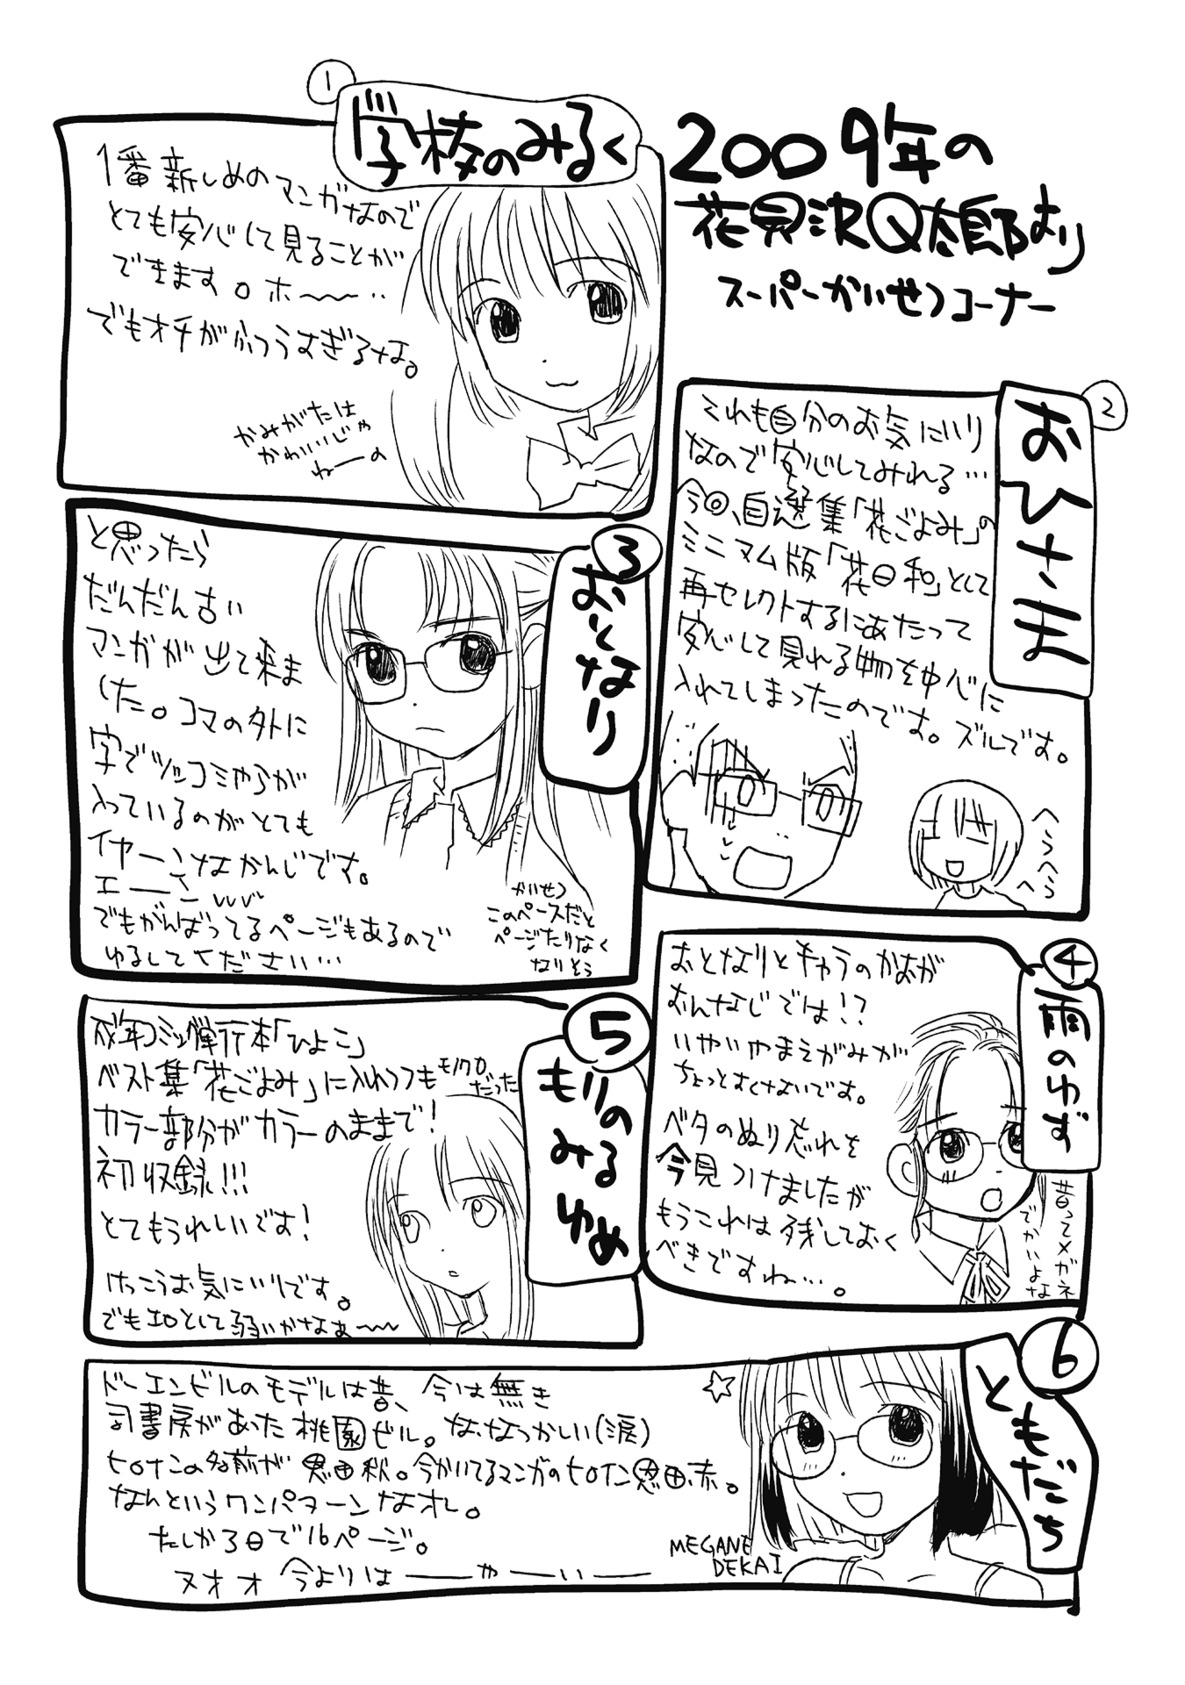 2009年の
花見沢Q太郎より
スーパーかいせつコーナー
1
学校のみるく
1番新しめのマンガなので
とても安心して見ることが
できます。ホ〜〜‥
でもオチがふつうすぎるな。
かみがたは
かわいいじゃ
ねーの
2
おひさま
それも自分のお気にいり
なので安心してみれる…
今回、自選集「花ごよみ」の
ミニマム版「花日和」として
再セレクトするにあたって
安心して見れる物を中心に
入れてしまったのです。ズルです。
へらへら
へ
3
おとなり
と思ったら
だんだん古い
マンガが出て来ま
した。コマの外に
字でツッコミやらが
入っているのがとても
イヤーンなかんじです。
エーン
でもがんばってるページもあるので
ゆるしてください…
かいせつ
このペースだと
ページたりなく
なりそう
4
雨のゆず
おとなりとキャラのかおが
おんなじでは!?
いやいやまえがみが
ちょっとすくないです。
ベタのぬり忘れを
今見つけましたが
もうこれは残しておく
べきですね…。
昔ってメガネ
でかいよな
5
もりの
みる
ゆめ
成年コミック単行本「ひよこ」
ベスト集「花ごよみ」に入れつつもモノクロ
だった
カラー部分がカラーのままで!
初収録!!!
とてもうれしいです!
けっこうお気にいりです。
でもエロとして弱いかなぁ〜〜
6
ともだち
ドーエンビルのモデルは昔、今は無き
司書房があった桃園ビル。な、なつかしい(涙)
ヒロインの名前が恩田秋。今かいてるマンガのヒロイン恩田赤。
なんというワンパターンなオレ。
たしか3日で16ページ。
ヌオオ 今よりはーーやーいー
MEGANE
DEKAI